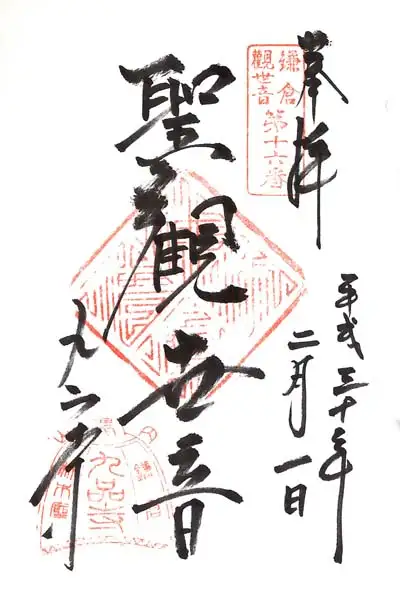 奉拝
鎌倉
觀世音
第十六番
平成三十年
二月一日
聖觀世音
九品寺
鎌倉
九品寺
材木座